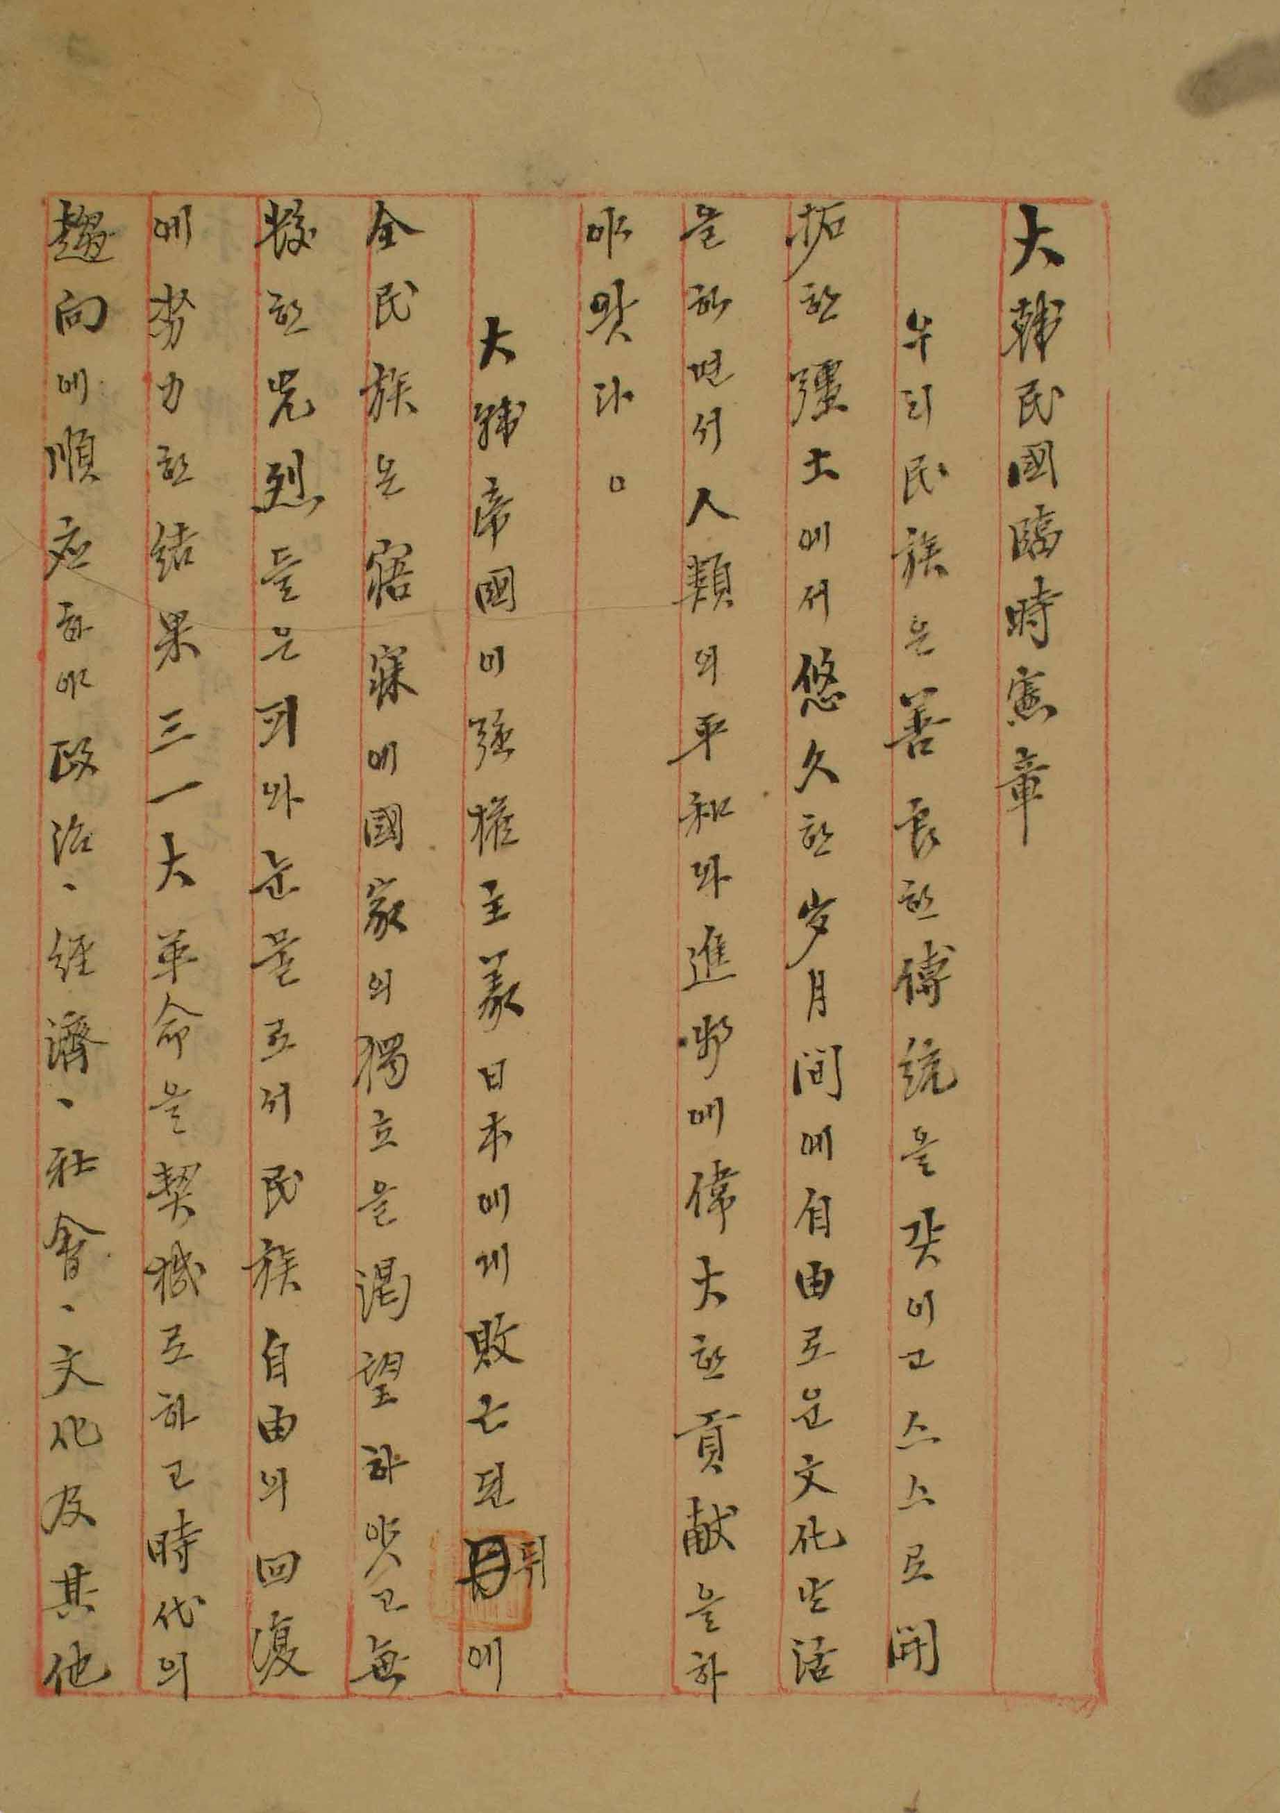 大韓民國臨時憲章
우리民族은善良한傳統을갖이고스스로開
拓한疆土에서悠久한岁月間에自由로운文化生活
을하면서人類의平和와進步에偉大한貢献을하
야왓다。
大韓帝國이强權主義日本에게敗亡된뒤에
全民族은寤寐에國家의獨立을渴望하얏고無
数한先烈들은피와눈물로서民族自由의回復
에努力한結果三一大革命을契機로하고時代의
趨向에順应하야政治、經濟、社會、文化及其他